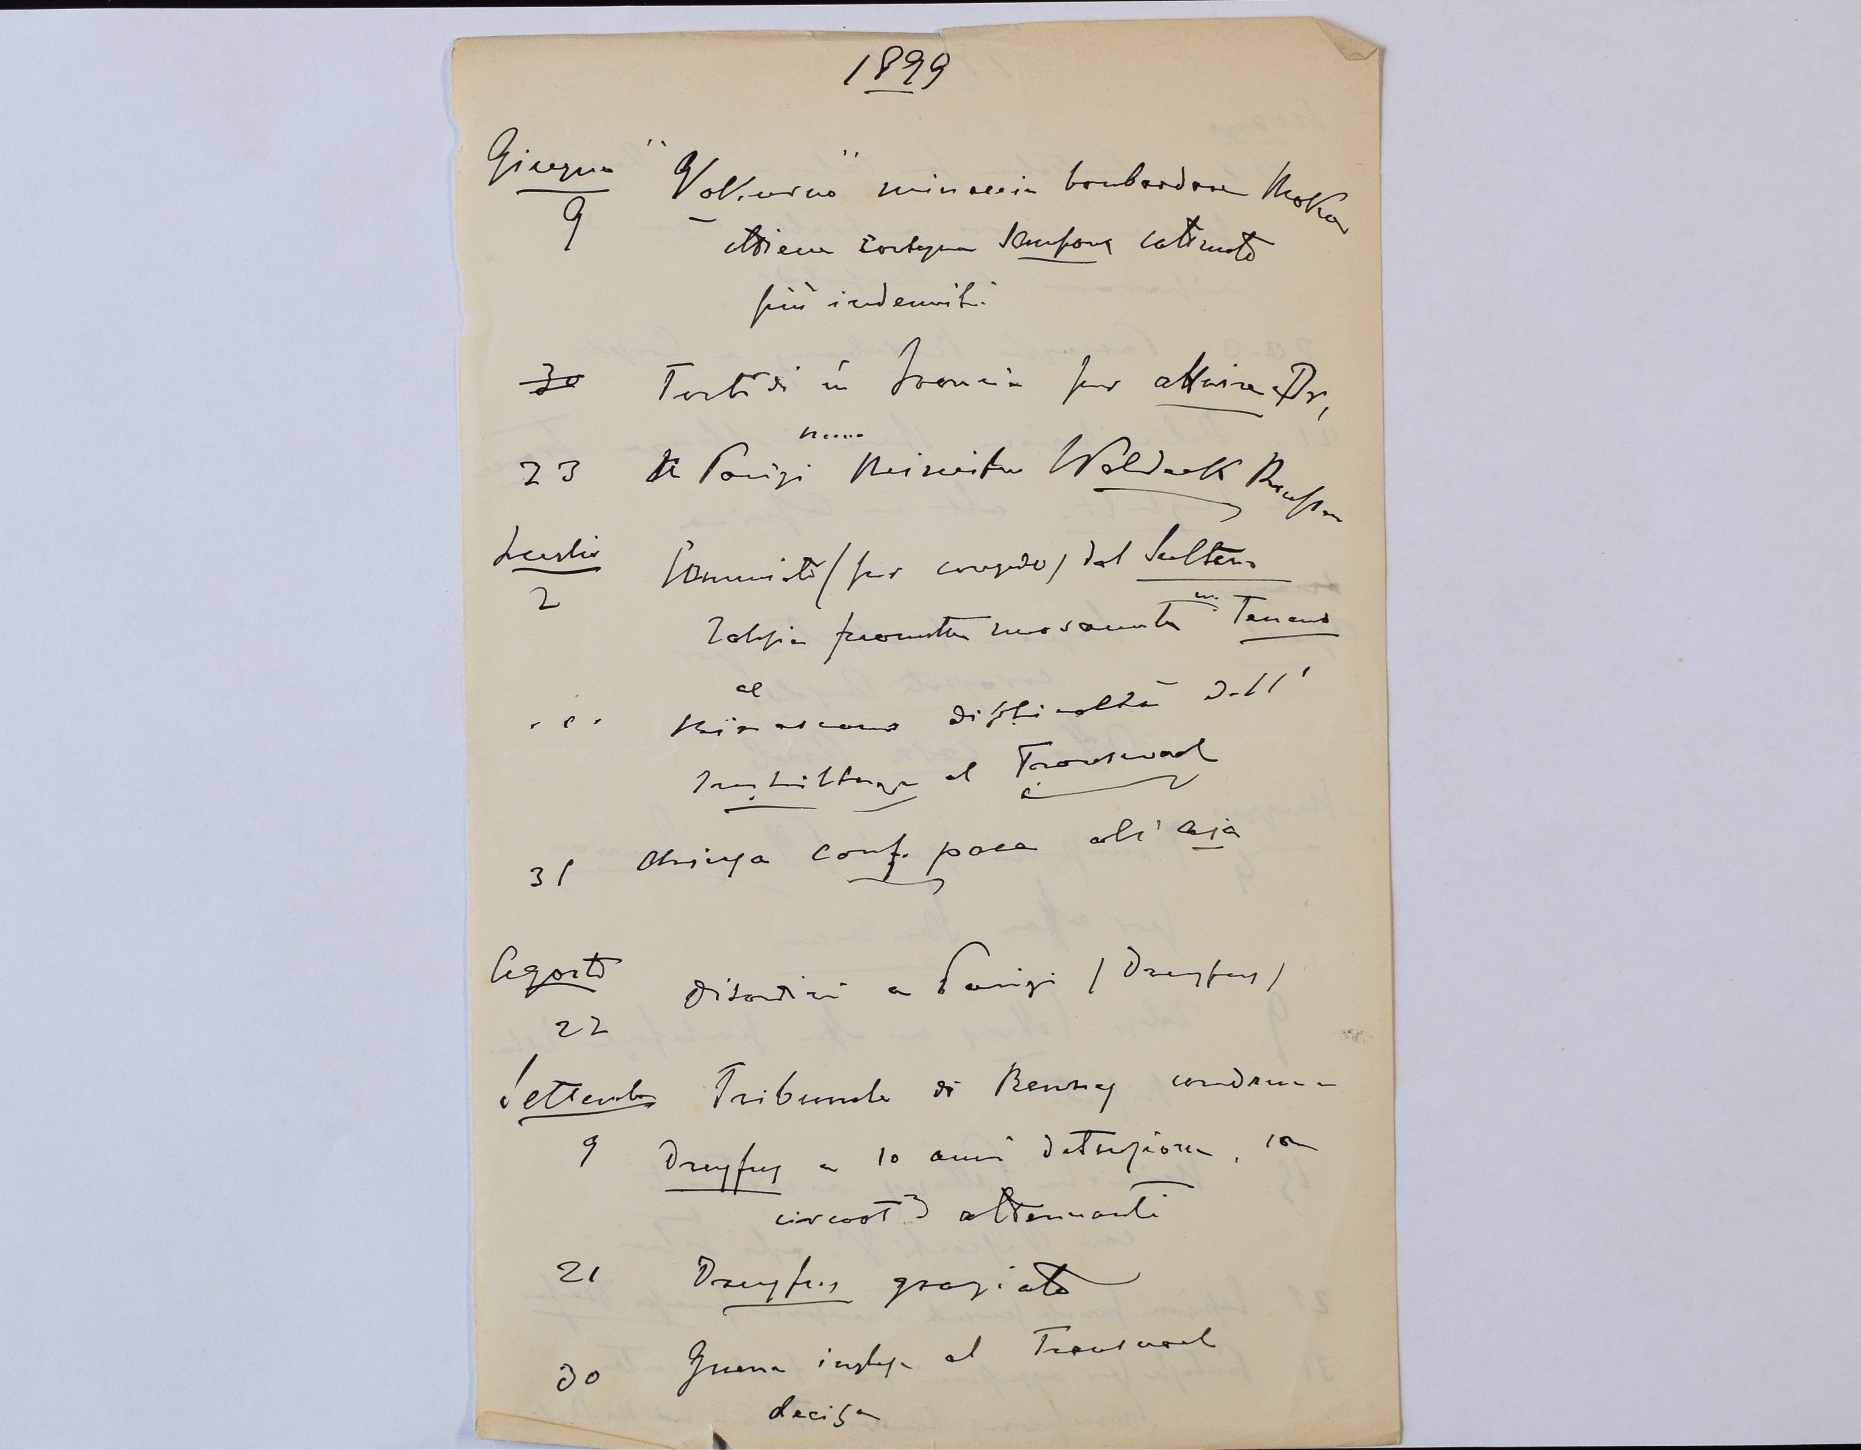 1899
Giugno "Volturno" minaccia bombardare Moka
9 ottiene consegna catturato
più indennità
30 Torbidi in Francia per affaire Dr,
nuovo
23 A Parigi Ministero Waldeck Rousseau
Luglio (per congedo) dal Sultano
2 promette
difficoltà dell'
Inghilterra al Transwaal
31 Chiusa conf. pace all'Aja
Agosto Disordini a Parigi (Dreyfus)
22
Settembre Tribunale di Rennes condanna
9 Dreyfus a 10 anni detenzione, con
circost attenuanti
21 Dreyfus graziato
30 Guerra inglese al Transwaal
decisa